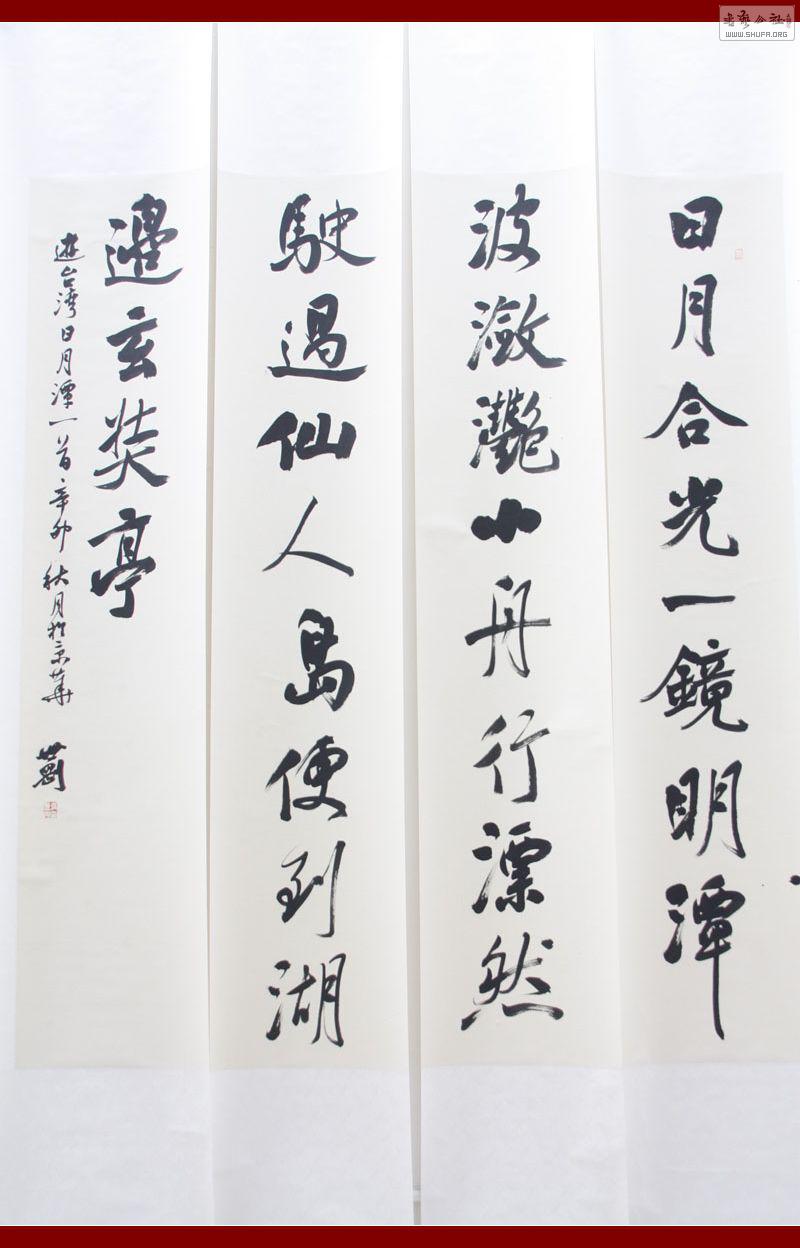 日月合光一鏡明潭
波潋灩小舟行漂然
駛過仙人島便到湖
邊玄奘亭
遊台湾日月潭一首辛卯秋月於京華
WWW.SHUFA.ORG